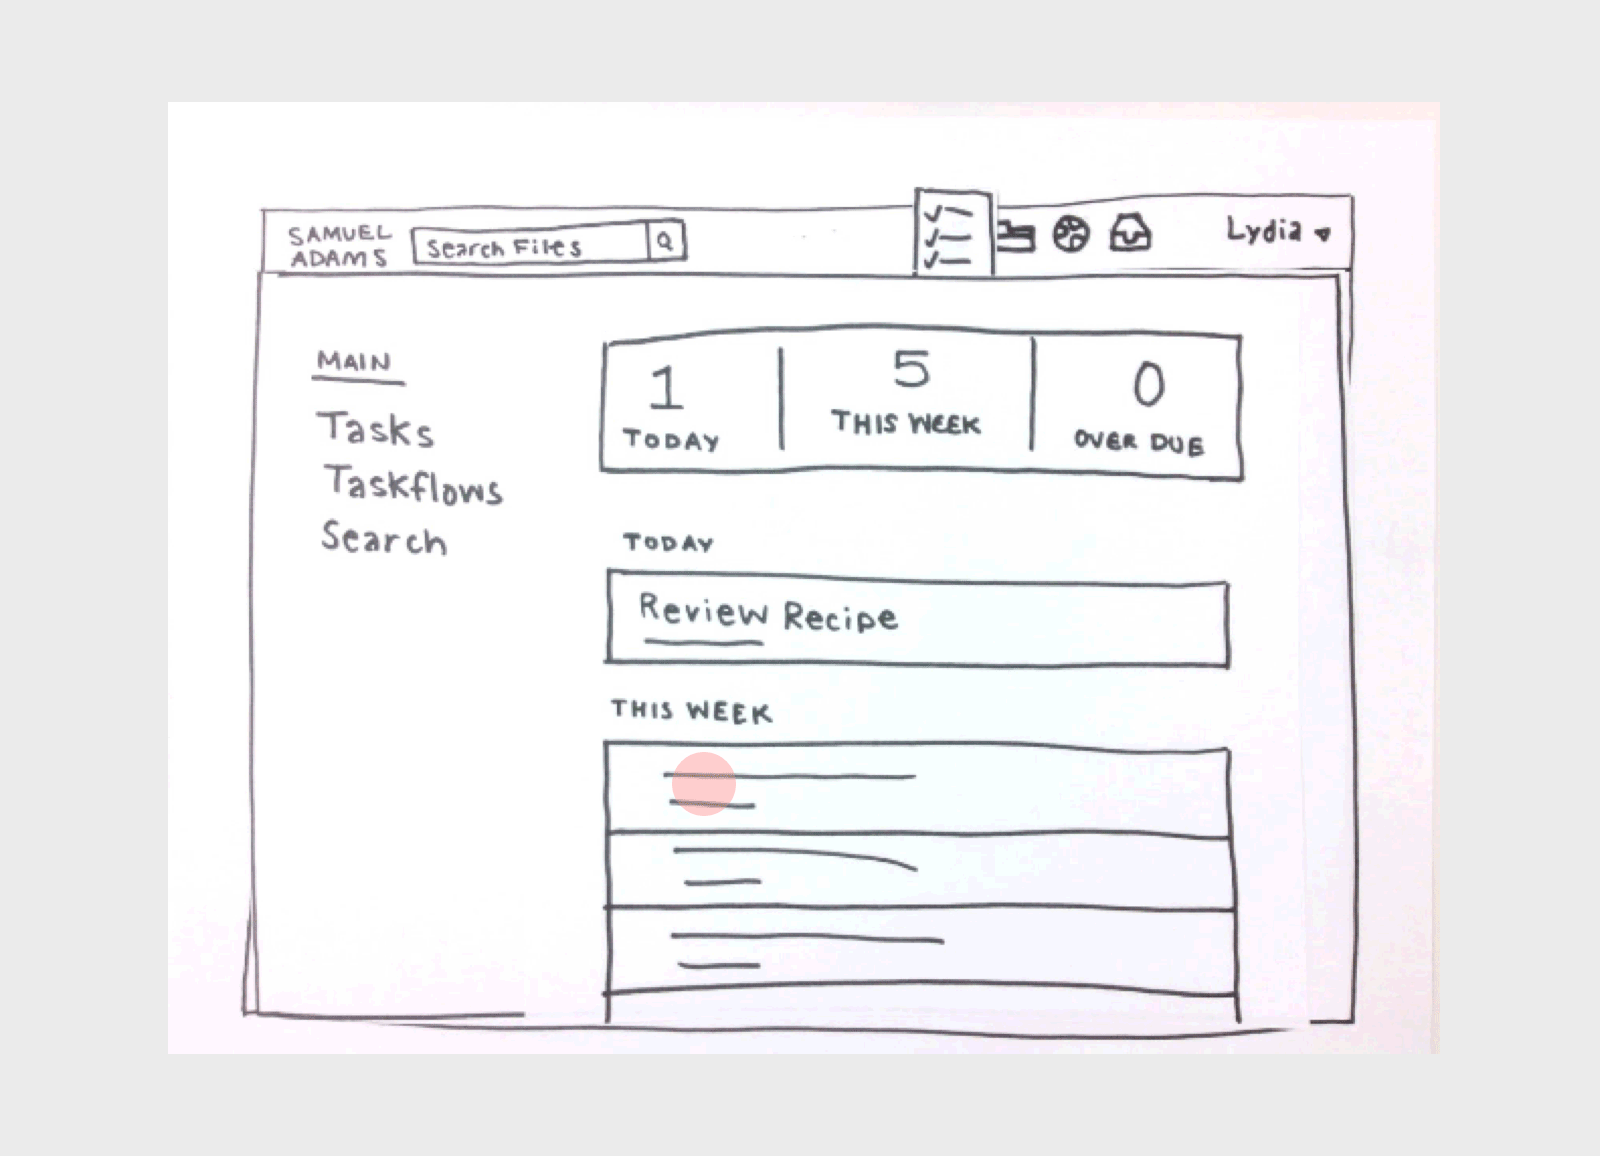 SAMUEL
ADAMS
Search Files
Lydia
MAIN
Tasks
Taskflows
Search
1
TODAY
5
THIS WEEK
0
OVER DUE
TODAY
Review Recipe
THIS WEEK